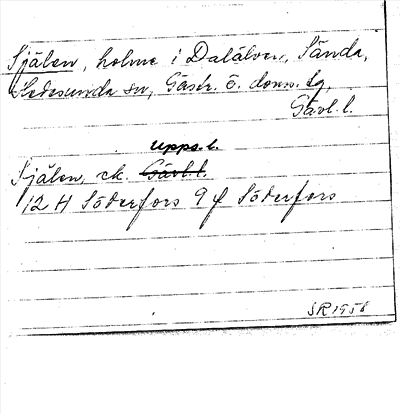 Själen, holme i Dalälven, Sända,
Hedesunda sn, Gästr. ö. doms. lg,
Gävl. l.
Upps. l.
Själen, ek. Gävl. l.
12 H Söderfors 9 f Söderfors
SR 1958